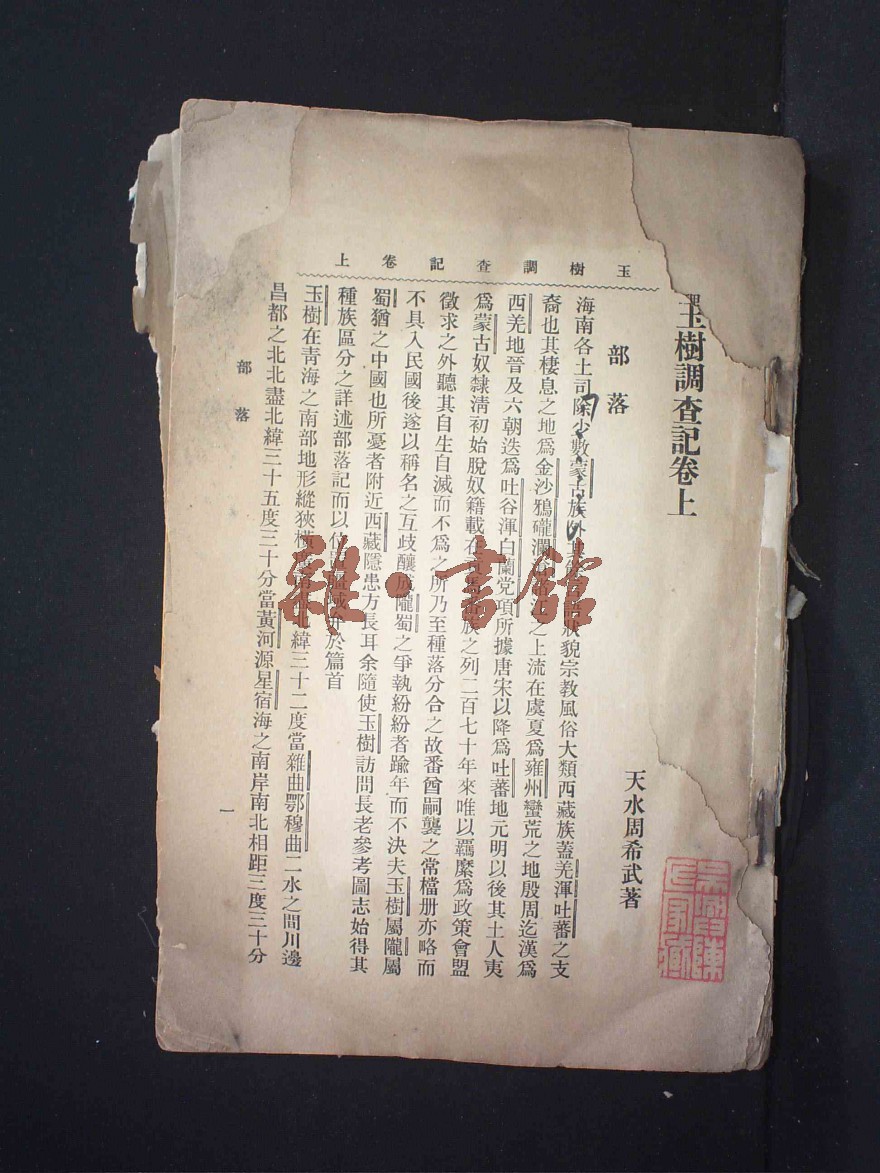 玉樹調查記卷上
玉樹調查記卷上
天水周希武著
部落
海南各土司除少數蒙古族外其餘言語狀貌宗教風俗大類西藏族蓋羌渾吐蕃之支
裔也其棲息之地爲金沙鴉礲瀾滄諸江之上流在虞夏爲雍州蠻荒之地殷周迄漢爲
西羌地晉及六朝迭爲吐谷渾白蘭党項所據唐宋以降爲吐蕃地元明以後其土人夷
爲蒙古奴隸淸初始脫奴籍載在族之列二百七十年來唯以羈縻爲政策會盟
徵求之外聽其自生自滅而不爲之所乃至種落分合之故番酋嗣襲之常檔册亦略而
不具入民國後遂以稱名之互歧釀成隴蜀之爭執紛紛者踰年而不決夫玉樹屬隴屬
蜀猶之中國也所憂者附近西藏隱患方長耳余隨使玉樹訪問長老參考圖志始得其
種族區分之詳述部落記而以位於篇首
玉樹在靑海之南部地形縱狹橫北緯三十二度當雜曲鄂穆曲二水之間川邊
昌都之北北盡北緯三十五度三十分當黃河源星宿海之南岸南北相距三度三十分
部落
一
雜·書館